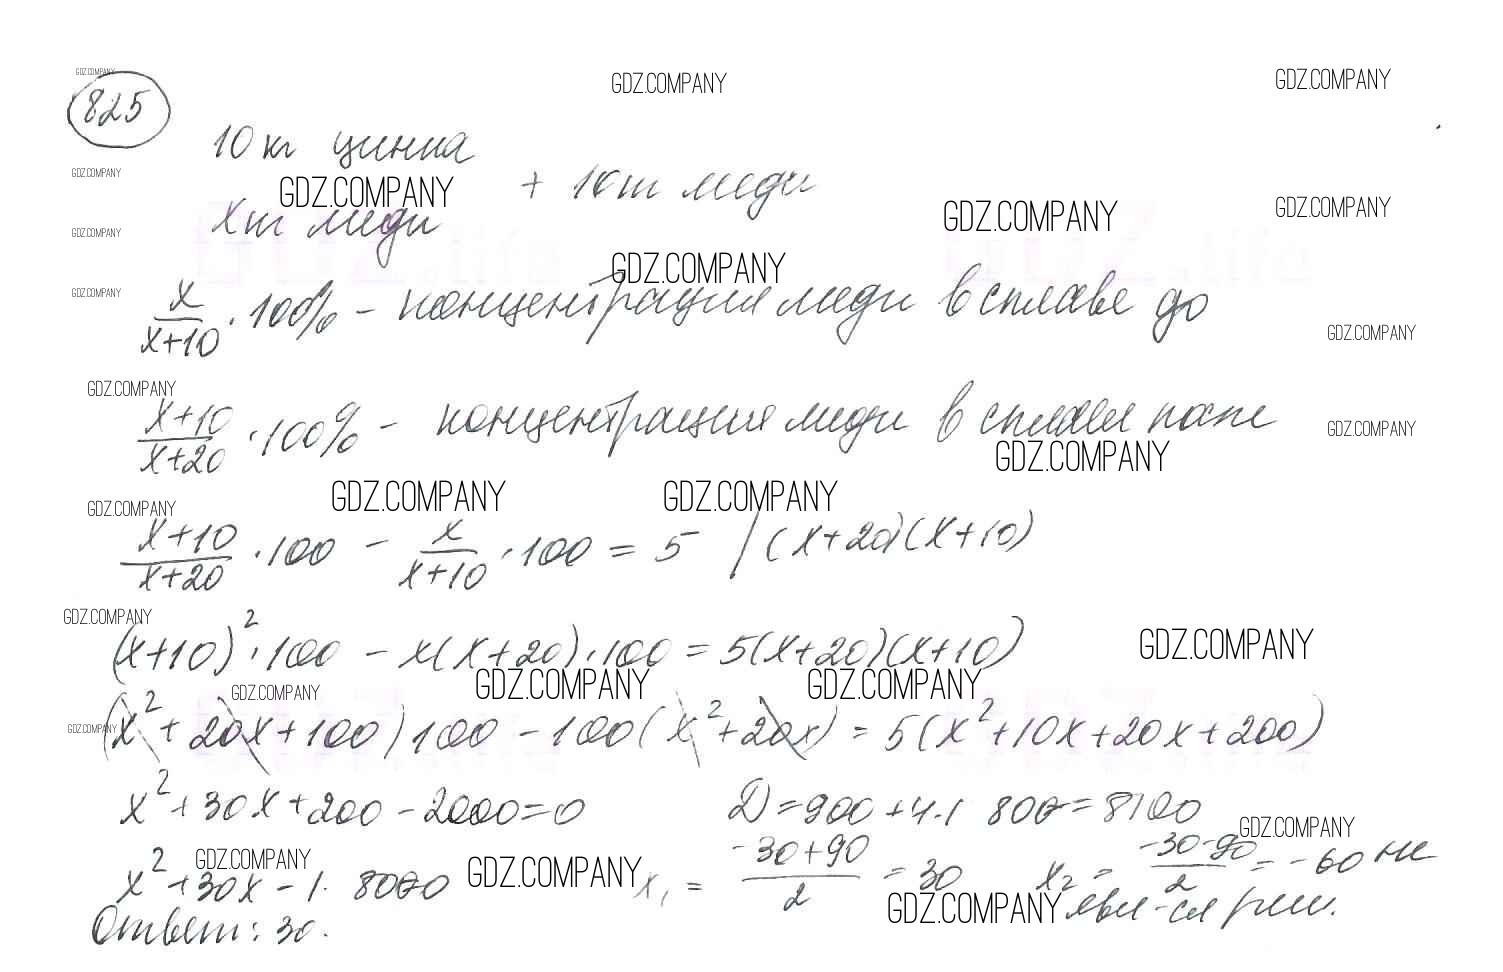 GDZ.COMPANY
GDZ.COMPANY GDZ.COMPANY
825
10 кг цинка
GDZ.COMPANY
GDZ.COMPANY + 10 т меди
GDZ.COMPANY GDZ.COMPANY
X т меди
GDZ.COMPANY
GDZ.COMPANY
GDZ.COMPANY
x/(x+10) · 100% – концентрация меди в сплаве до
GDZ.COMPANY
GDZ.COMPANY
(x+10)/(x+20) · 100% – концентрация меди в сплаве после
GDZ.COMPANY
GDZ.COMPANY
GDZ.COMPANY GDZ.COMPANY
GDZ.COMPANY
(x+10)/(x+20) · 100 – x/(x+10) · 100 = 5 | (x+20)(x+10)
GDZ.COMPANY
(x+10)² · 100 – x(x+20) · 100 = 5(x+20)(x+10)
GDZ.COMPANY
GDZ.COMPANY GDZ.COMPANY GDZ.COMPANY
GDZ.COMPANY
(x² + 20x + 100) 100 – 100 (x² + 20x) = 5(x² + 10x + 20x + 200)
x² + 30x + 200 – 2000 = 0 D = 900 + 4·1 800 = 8100
GDZ.COMPANY
GDZ.COMPANY GDZ.COMPANY
x² + 30x – 1· 800 x₁ = (-30+90)/2 = 30 x₂ = (-30-90)/2 = -60 не
GDZ.COMPANY явл-ся реш.
Ответ: 30.